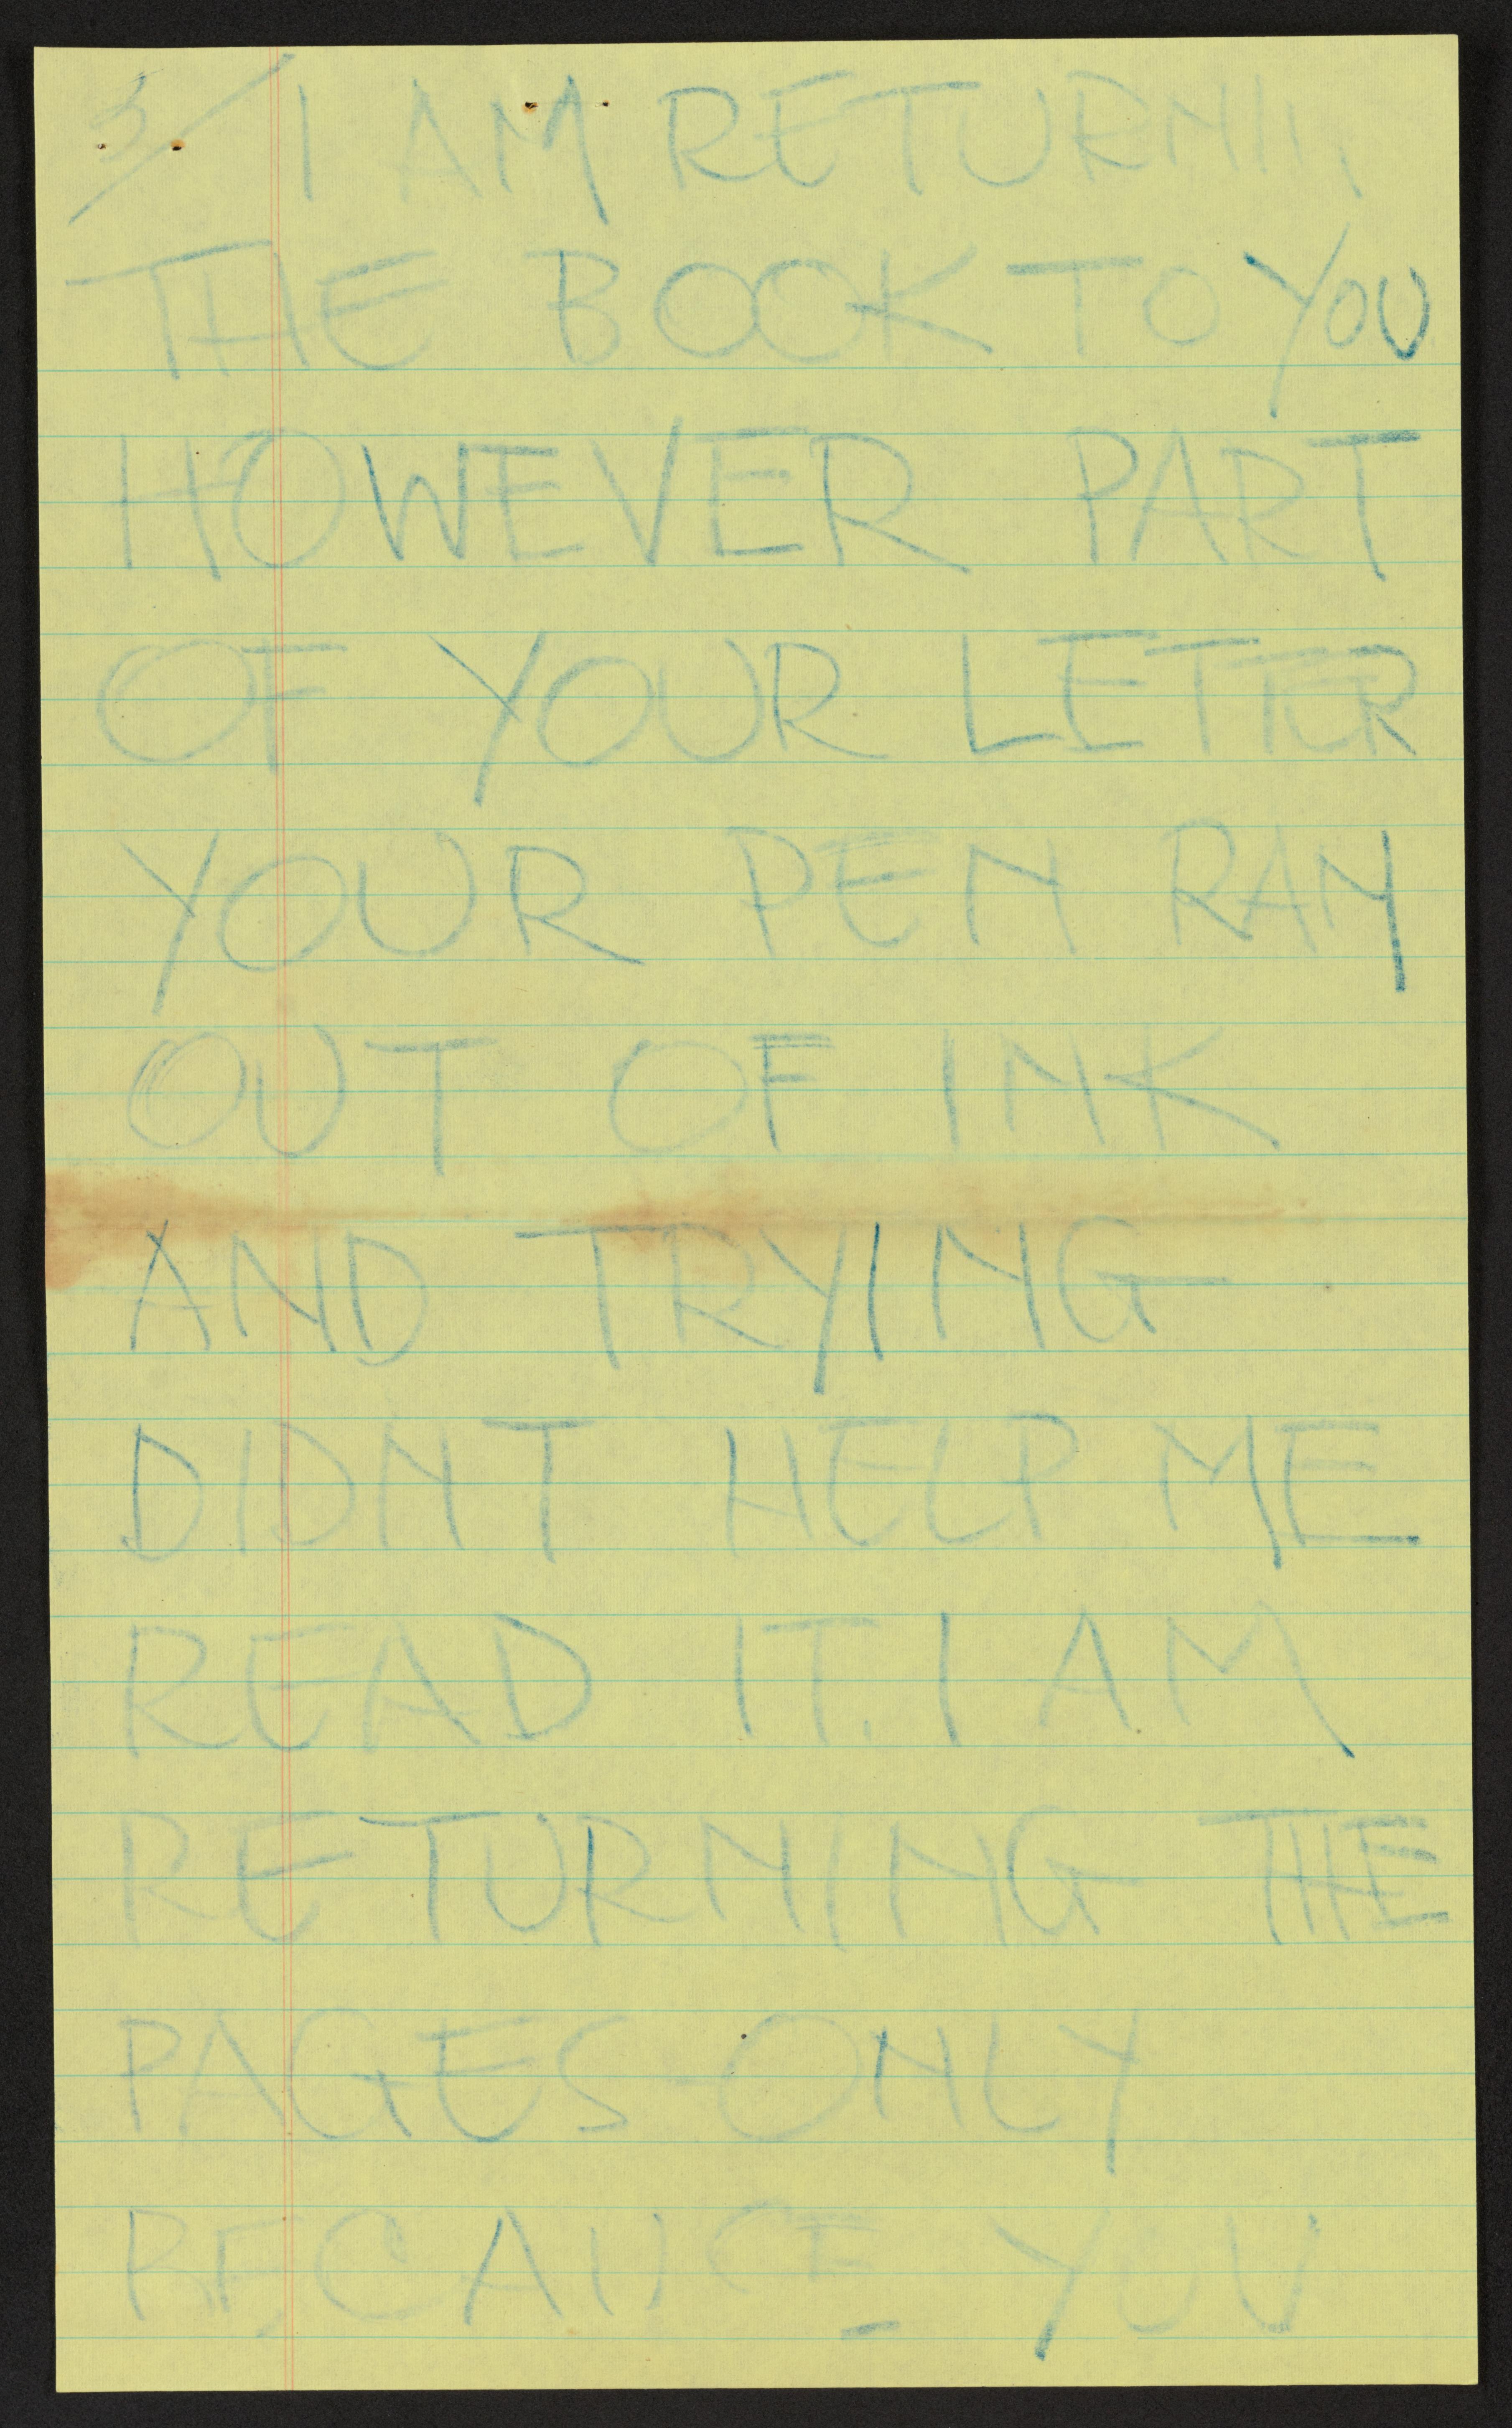 3/ I AM RETURNING
THE BOOK TO YOU
HOWEVER PART
OF YOUR LETTER
YOUR PEN RAN
OUT OF INK
AND TRYING
DIDNT HELP ME
READ IT. I AM
RETURNING THE
PAGES ONLY
BECAUSE YOU